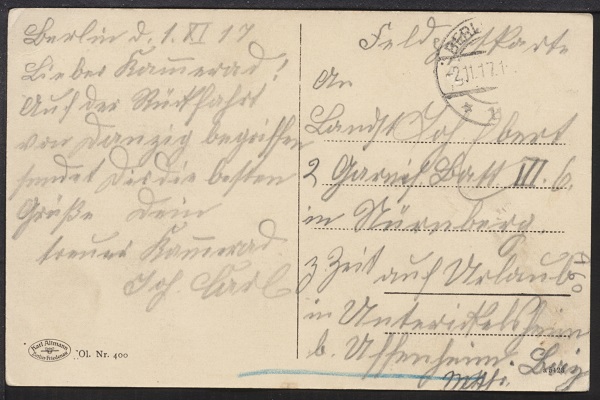 Berlin d. 1. XI 17
Lieber Kamerad!
Auf der Rückfahrt
von Danzig begriffen
sendet Dir die besten
Grüße Dein
treuer Kamerad
Joh. Carl
Karl Altmann
Ol. Nr. 400
Feldpostkarte
BERL
2.11.17.1
An
Landst Joh.
2 Garnis Batt III/6.
in Nürnberg.
z Zeit auf Urlaub
in
b. Uffenheim
160